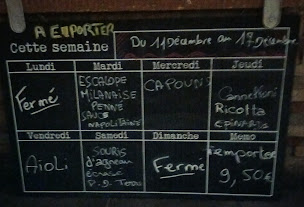 A EMPORTER
Cette semaine Du 11 Décembre au 17 Décembre
Lundi Mardi Mercredi Jeudi
Fermé
ESCALOPE
MILANAISE
PENNE
SAUCE
NAPOLITAINE
CAPOUNS
Cannelloni
Ricotta
EPINARDS
Vendredi Samedi Dimanche Memo
AïoLi
SOURIS
d'agneau
écrasé
Fermé
emporter
9,50€